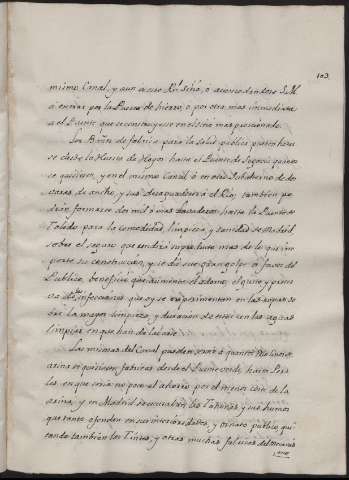 103
mismo Canal, y aun a ese Rl Sitio, ó acomodandose S.M.
á entrar por la Puerta de hierro, ó por otra mas inmediata
a el Puente que se construyese en el sitio mas proporcionado.
Los Baños de fabrica para la salud publica pueden hacerse
desde la Huerta de Mayor hasta el Puente de Segovia quantos
se quisieren, y en el mismo Canal ó en otro de
varas de ancho, y sus desaguaderos á el Rio, tambien po
drán formarse dos mil ó mas lavaderos hasta la Puente de
Toledo para la comodidad, limpieza y sanidad de Madrid
sobre el seguro que tendrá su producto mas de lo que im
porte su construccion, y se dió sin quien á favor del
Publico, beneficio que aumenta el adorno, el gusto y preser
va de las infecciones que oy se experimentan en las ropas so
bre la mayor limpieza, y duracion de estas con las aguas
limpias en que han de lavarse.
Las mismas del Canal pueden servir á quantos Molinos de
arina se quisieren fabricar desde el Puente verde hacia
en que seria no poco el ahorro por el menos coste de la
arina, y en Madrid se escusarian las Tahonas y sus humos
que tanto ofenden en sus interioridades, y ornato publico, qui
tando tambien los Tintes, y otras muchas fabricas del